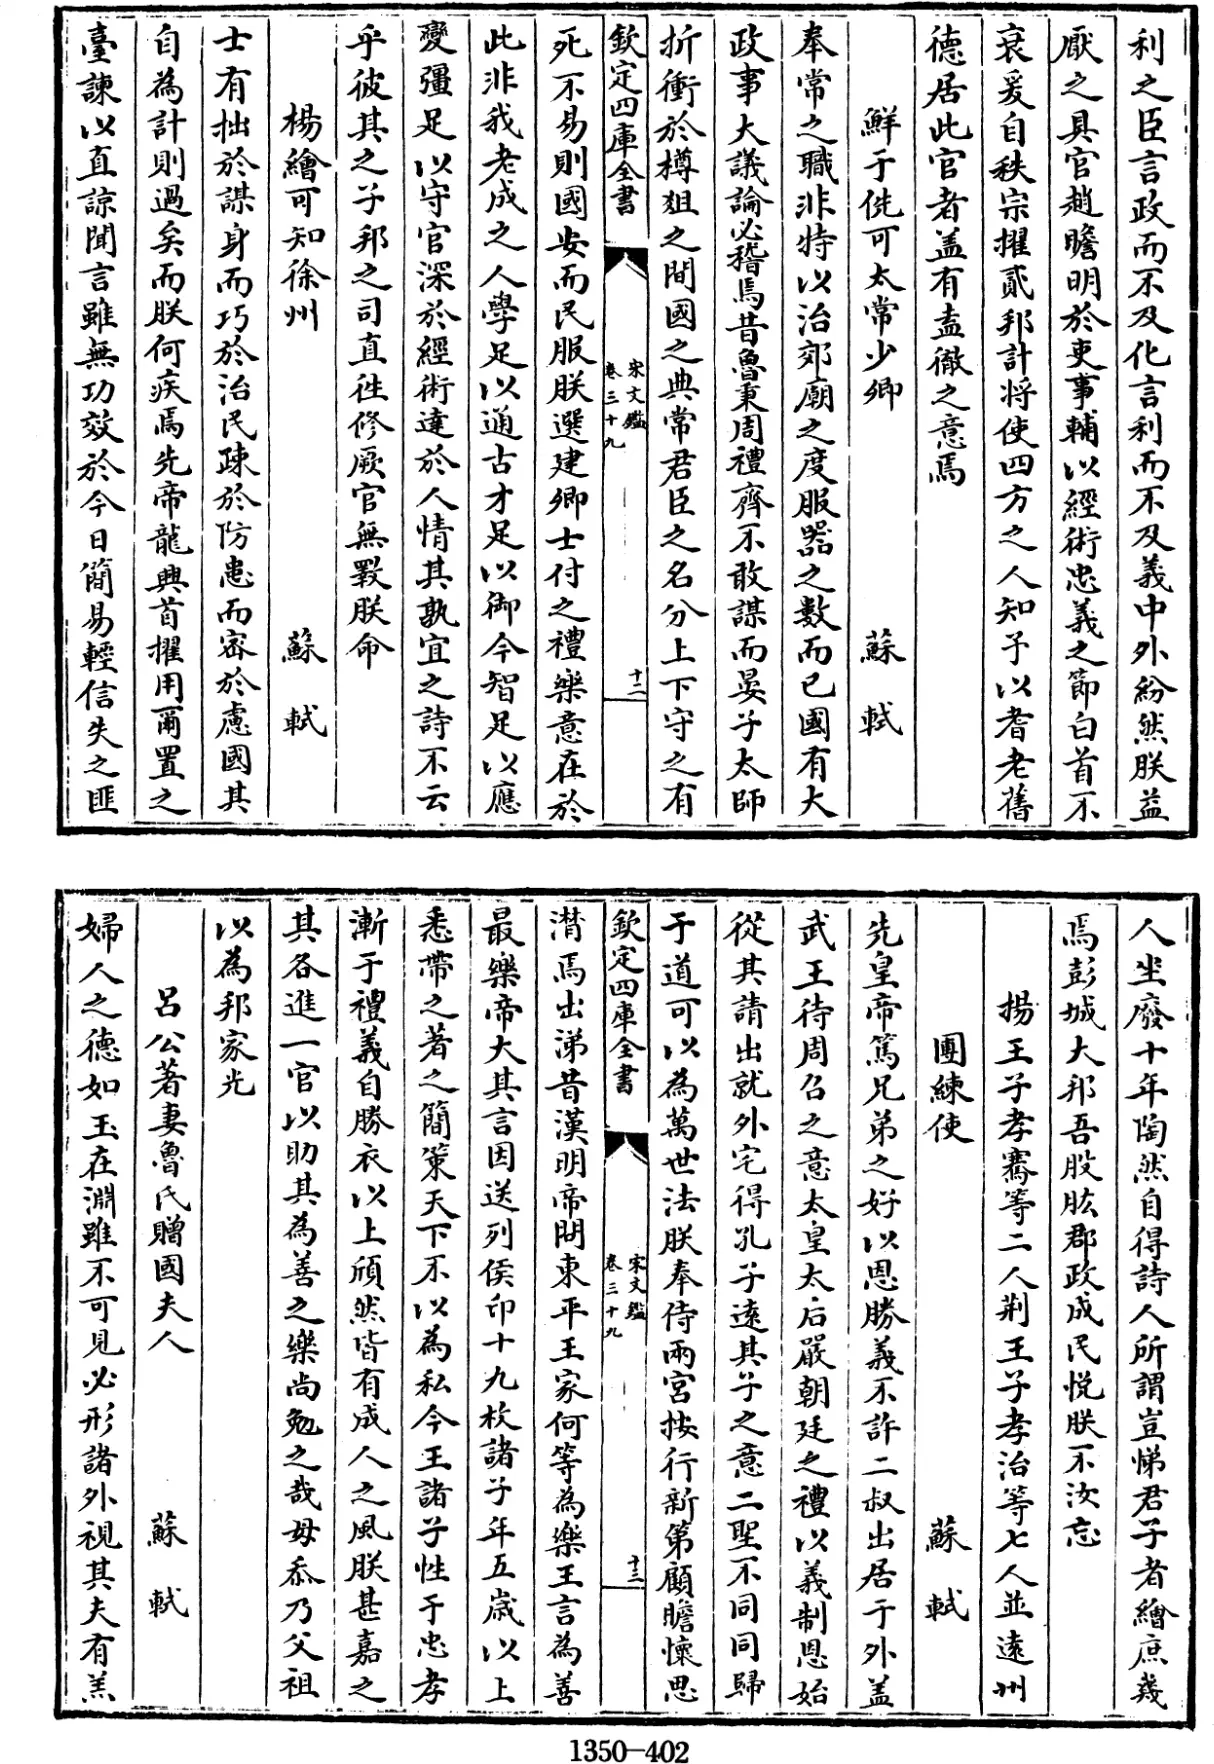 利之臣言政而不及化言利而不及義中外紛然朕益
厭之具官趙瞻明於吏事輔以經術忠義之節白首不
衰爰自秩宗擢貳邦計将使四方之人知予以耆老舊
德居此官者盖有盍徹之意焉
鮮于侁可太常少卿 蘇軾
奉常之職非特以治郊廟之度服器之數而已國有大
政事大議論必稽焉昔魯秉周禮齊不敢謀而晏子太師
折衝於樽俎之間國之典常君臣之名分上下守之有
欽定四庫全書 宋文鑑 卷三十九 十二
死不易則國安而民服朕選建卿士付之禮樂意在於
此非我老成之人學足以通古才足以御今智足以應
變彊足以守官深於經術達於人情其孰宜之詩不云
乎彼其之子邦之司直往修厥官無斁朕命
楊繪可知徐州 蘇軾
士有拙於謀身而巧於治民疎於防患而密於慮國其
自為計則過矣而朕何疾焉先帝龍興首擢用爾置之
臺諫以直諒聞言雖無功效於今日簡易輕信失之匪
人坐廢十年陶然自得詩人所謂豈悌君子者繪庶幾
焉彭城大邦吾股肱郡政成民悦朕不汝忘
揚王子孝騫等二人荆王子孝治等七人並逺州
團練使 蘇軾
先皇帝篤兄弟之好以恩勝義不許二叔出居于外盖
武王待周召之意太皇太后嚴朝廷之禮以義制恩始
從其請出就外宅得孔子逺其子之意二聖不同同歸
于道可以為萬世法朕奉侍兩宫按行新第顧瞻懷思
欽定四庫全書 宋文鑑 卷三十九 十三
潸焉出涕昔漢明帝問東平王家何等為樂王言為善
最樂帝大其言因送列侯印十九枚諸子年五歳以上
悉帶之著之簡策天下不以為私今王諸子性于忠孝
漸于禮義自勝衣以上頎然皆有成人之風朕甚嘉之
其各進一官以助其為善之樂尚勉之哉毋忝乃父祖
以為邦家光
吕公著妻魯氏贈國夫人 蘇軾
婦人之德如玉在淵雖不可見必形諸外視其夫有羔
1350-402